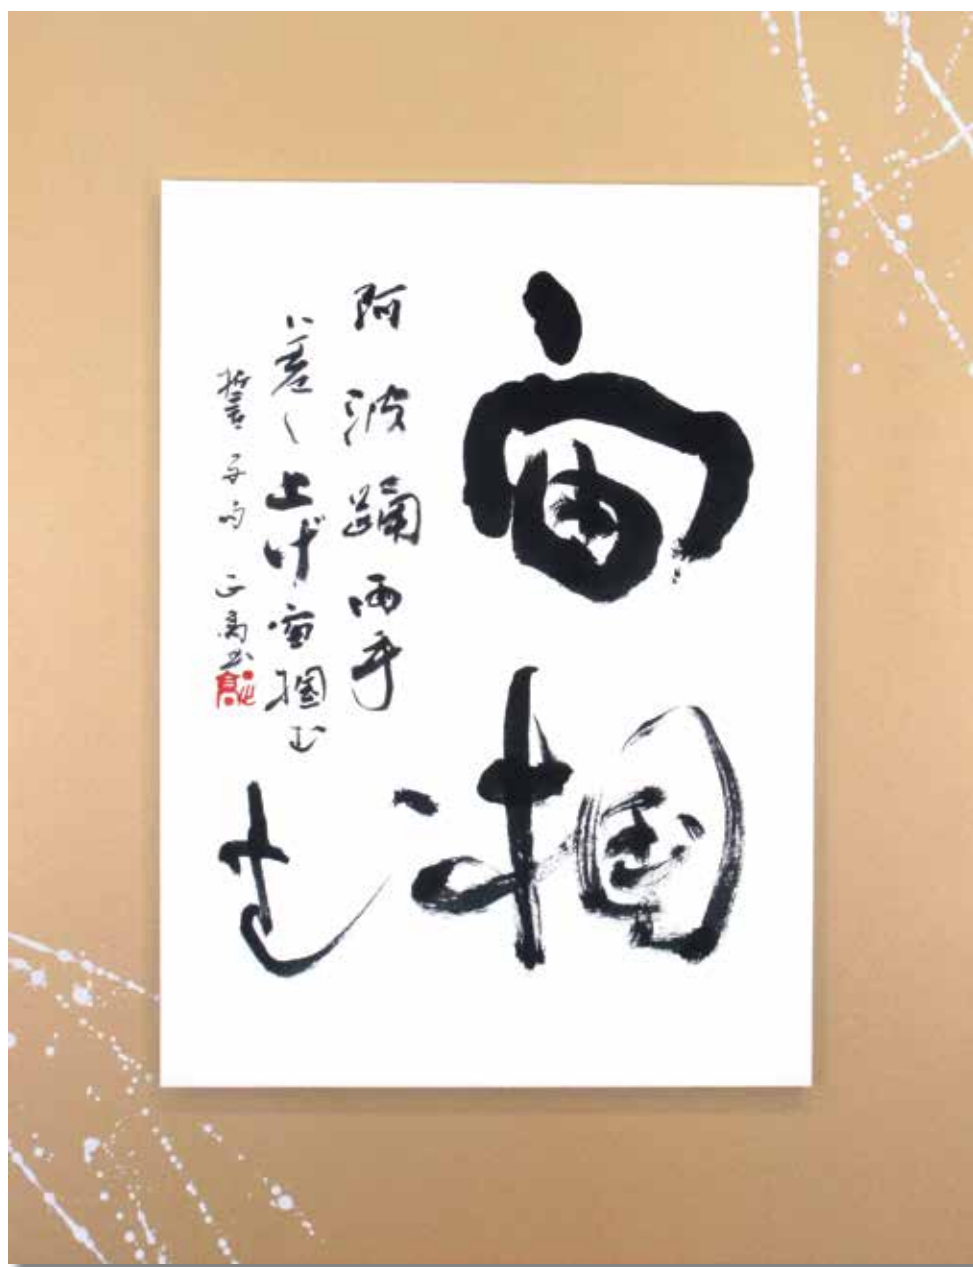 宙掴
む
阿波踊両手
差し上げ宙掴む
誓子句 正高書